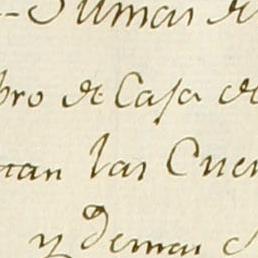 Sumas de
bro de Casa de
man las Cuen
y Demas